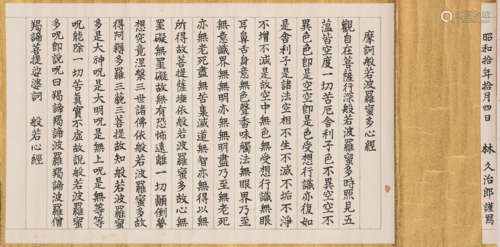 昭和拾年拾月四日 林久治郎謹寫
摩訶般若波羅蜜多心經
觀自在菩薩行深般若波羅蜜多時照見五
蘊皆空度一切苦厄舍利子色不異空空不
異色色即是空空即是色受想行識亦復如
是舍利子是諸法空相不生不滅不垢不淨
不增不減是故空中無色無受想行識無眼
耳鼻舌身意無色聲香味觸法無眼界乃至
無意識界無無明亦無無明盡乃至無老死
亦無老死盡無苦集滅道無智亦無得以無
所得故菩提薩埵依般若波羅蜜多故心無
罣礙無罣礙故無有恐怖遠離一切顛倒夢
想究竟涅槃三世諸佛依般若波羅蜜多故
得阿耨多羅三藐三菩提故知般若波羅蜜
多是大神呪是大明呪是無上呪是無等等
呪能除一切苦真實不虛故說般若波羅蜜
多呪即說呪曰羯諦羯諦波羅羯諦波羅僧
羯諦菩提娑婆訶 般若心經